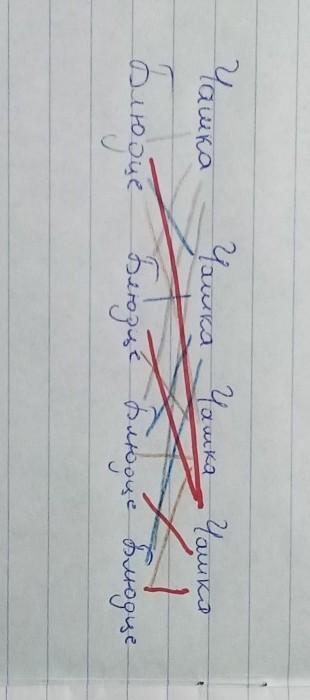 Чашка Чашка Чашка Чашка
Блюдце Блюдце Блюдце Блюдце